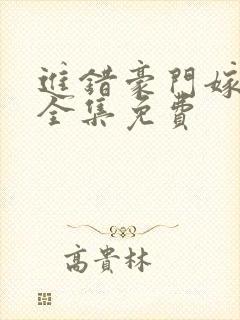 進錯豪門嫁
全集免費
高貴林